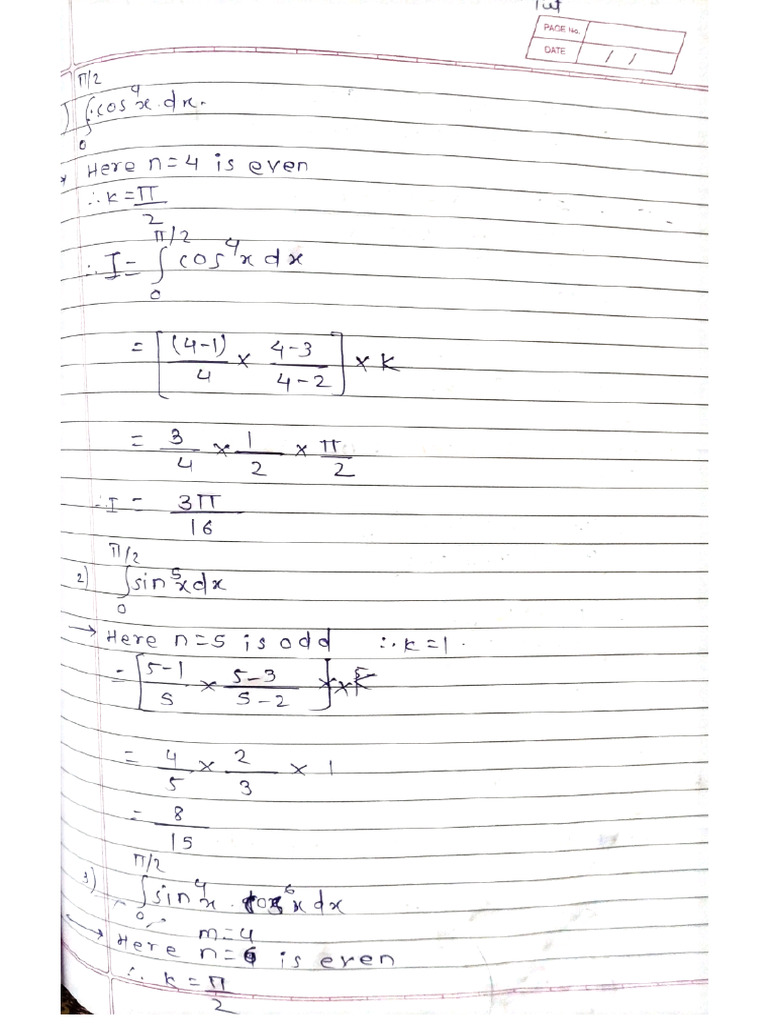 Tut
PAGE No.
DATE / /
1) ∫₀^π/2 cos⁴x.dx.
Here n=4 is even
∴ k = π/2
∴ I = ∫₀^π/2 cos⁴x dx
= [(4-1)/4 × 4-3/4-2] × K
= 3/4 × 1/2 × π/2
∴ I = 3π/16
2) ∫₀^π/2 sin⁵x dx
→ Here n=5 is odd ∴ k=1.
= [5-1/5 × 5-3/5-2] × K
= 4/5 × 2/3 × 1
= 8/15
3) ∫₀^π/2 sin⁴x . cos⁶x dx
m=4
→ Here n=6 is even
∴ k = π/2